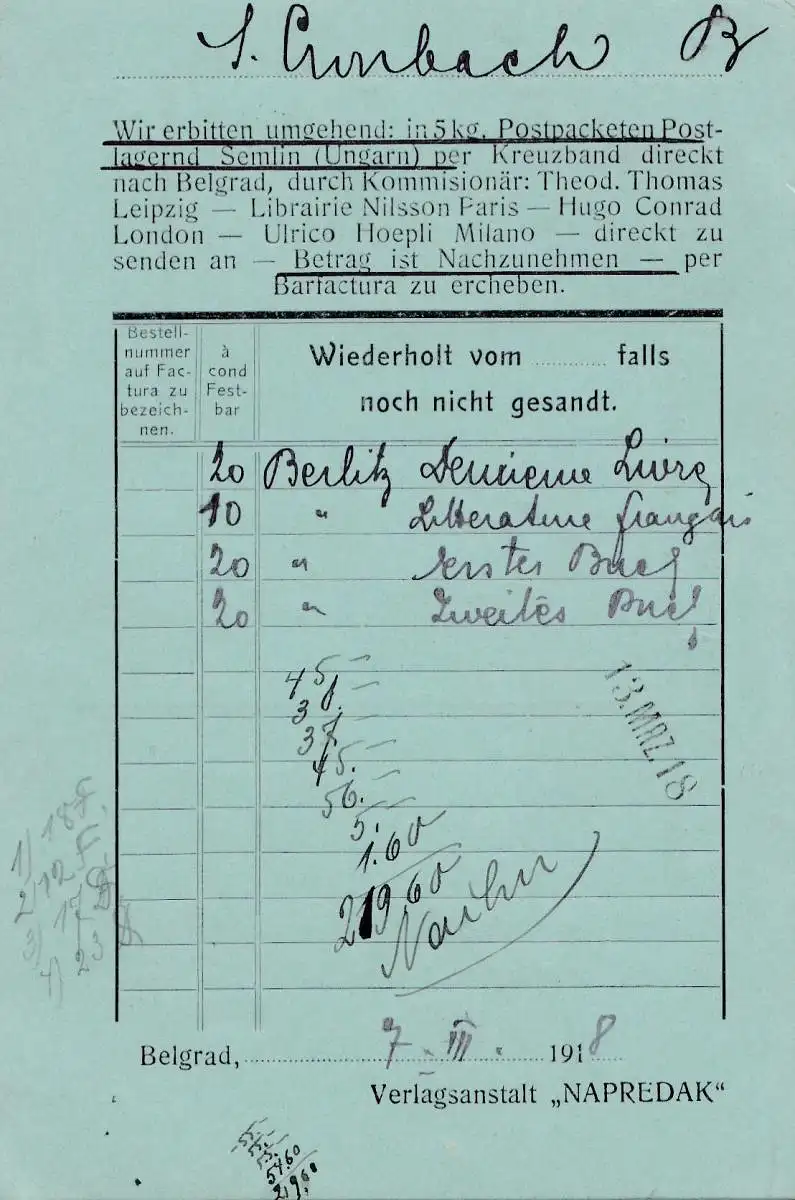 S. Cronbach B
Wir erbitten umgehend: in 5 kg. Postpacketen Post-
lagernd Semlin (Ungarn) per Kreuzband direckt
nach Belgrad, durch Kommisionär: Theod. Thomas
Leipzig — Librairie Nilsson Paris — Hugo Conrad
London — Ulrico Hoepli Milano — direckt zu
senden an — Betrag ist Nachzunehmen — per
Barfactura zu ercheben.
Bestell-
nummer
auf Fac-
tura zu
bezeich-
nen.
à
cond
Fest-
bar
Wiederholt vom ............ falls
noch nicht gesandt.
20 Berlitz Deuxieme Livre
10 " Litterature français
20 " erstes Buch
20 " Zweites Buch
45.
38.
37.
45.
56.
5.
1.60
219.60
13. MRZ. 18
1) 18 F.
2) 12 F
3) 17
4) 23
Belgrad, 7. III. 1918
Verlagsanstalt „NAPREDAK“
57.60
219.60